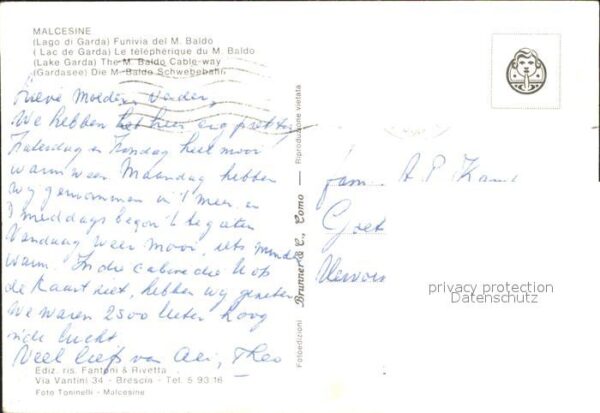 MALCESINE
(Lago di Garda) Funivia del M. Baldo
( Lac de Garda) Le télephérique du M. Baldo
(Lake Garda) The M. Baldo Cable-way
(Gardasee) Die M. Baldo Schwebebahn
Lieve Moeder, Vader,
We hebben het hier erg prettig
Zaterdag en Zondag heel mooi
warm weer Maandag hebben
wij gezwommen in 't meer, en
's middags begon 't te gieten
Vandaag weer mooi, iets minder
warm. In die cabine die U op
de kaart ziet, hebben wij gezeten
We waren 2500 meter hoog
in de lucht
Veel liefs van Theo
Ediz. ris. Fantoni & Rivetta
Via Vantini 34 - Brescia - Tel. 5 93 16
Foto Toninelli - Malcesine
Fotoedizioni Brunner & C., Como - Riproduzione vietata
fam. A. P.
privacy protection
Datenschutz